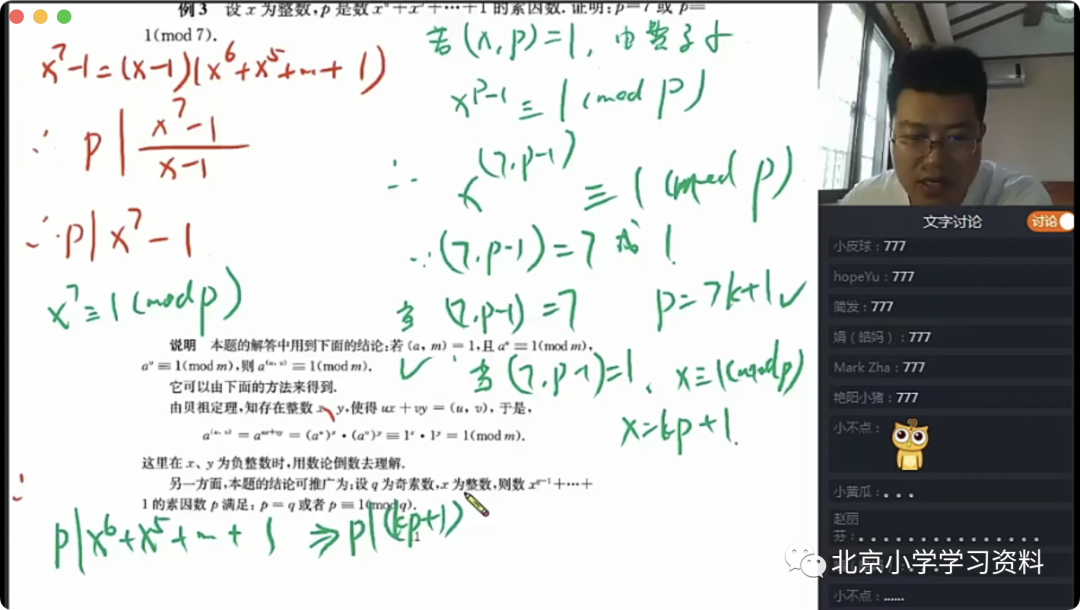 例 3 设 x 为整数,p 是数 x⁶+x⁵+⋯+1 的素因数.证明:p=7 或 p≡
1(mod 7).
x⁷-1=(x-1)(x⁶+x⁵+⋯+1)
∴ p | (x⁷-1)/(x-1)
∴ p | x⁷-1
x⁷≡1(mod p)
若(x,p)=1, 由费马
x^(p-1)≡1(mod p)
∴ x^(7,p-1)≡1(mod p)
∴(7,p-1)=7或1.
当(7,p-1)=7 p=7k+1✓
✓当(7,p-1)=1, x≡1(mod p)
x=kp+1.
说明 本题的解答中用到下面的结论:若(a,m)=1,且 aᵘ≡1(mod m),
aᵛ≡1(mod m),则 a^(u,v)≡1(mod m).
它可以由下面的方法来得到.
由贝祖定理,知存在整数 x、y,使得 ux+vy=(u,v),于是,
a^(u,v)=a^(ux+vy)=(aᵘ)ˣ•(aᵛ)ʸ≡1ˣ•1ʸ=1(mod m).
这里在 x、y 为负整数时,用数论倒数去理解.
另一方面,本题的结论可推广为:设 q 为奇素数,x 为整数,则数 x^(q-1)+⋯+
1 的素因数 p 满足:p=q 或者 p≡1(mod q).
∴
p|x⁶+x⁵+⋯+1 ⇒ p|(kp+1)
文字讨论
讨论
小皮球:777
hopeYu:777
简发:777
娟(皓妈):777
Mark Zha:777
艳阳小猪:777
小不点:
小黄瓜:...
赵丽
芬:
北京小学学习资料
小不点:......